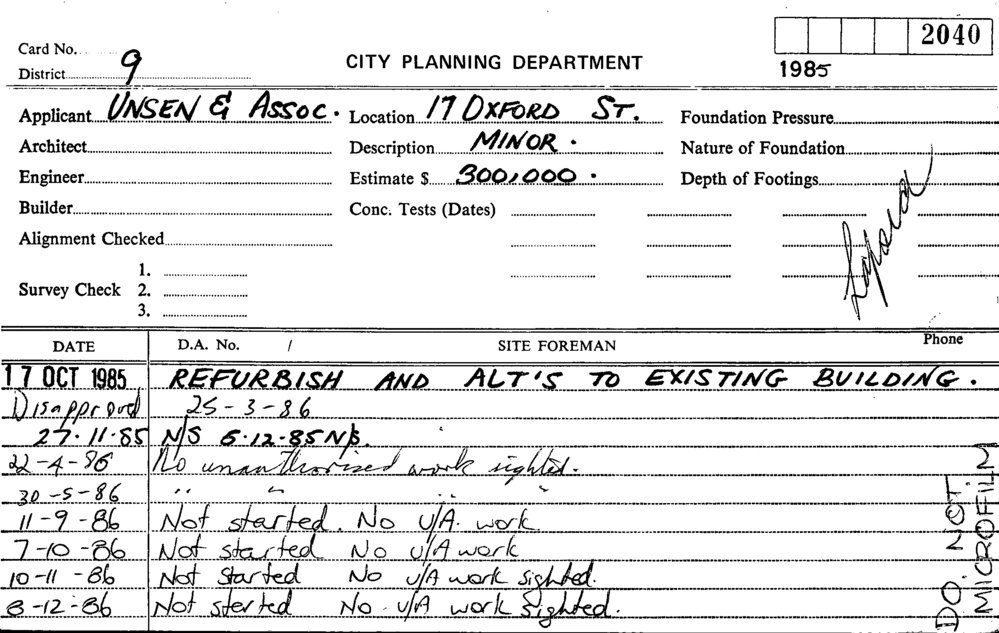 2040
Card No.
1985
District 9
CITY PLANNING DEPARTMENT
Applicant UNSEN & ASSOC. Location 17 OXFORD ST. Foundation Pressure
Architect Description MINOR. Nature of Foundation
Engineer Estimate $ 300,000. Depth of Footings
Builder Conc. Tests (Dates)
Alignment Checked
Survey Check 1.
2.
3.
Lapsed
DATE D.A. No. / SITE FOREMAN Phone
17 OCT 1985 REFURBISH AND ALT'S TO EXISTING BUILDING.
Disapproved 25-3-86
27.11.85 N/S 5.12.85 N/S.
22-4-86 No unauthorised work sighted.
30-5-86 " " " "
11-9-86 Not started. No U/A. work
7-10-86 Not started No U/A work
10-11-86 Not started No U/A work sighted.
8-12-86 Not sterted No U/A work sighted.
DO. NOT
MICROFILM